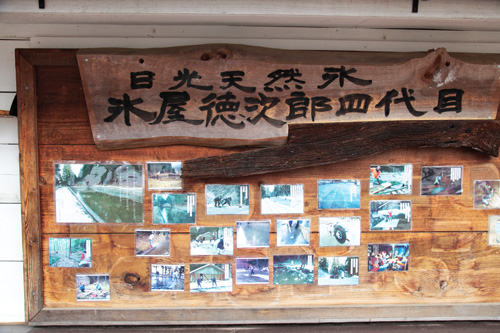 日光天然氷
氷屋徳次郎四代目